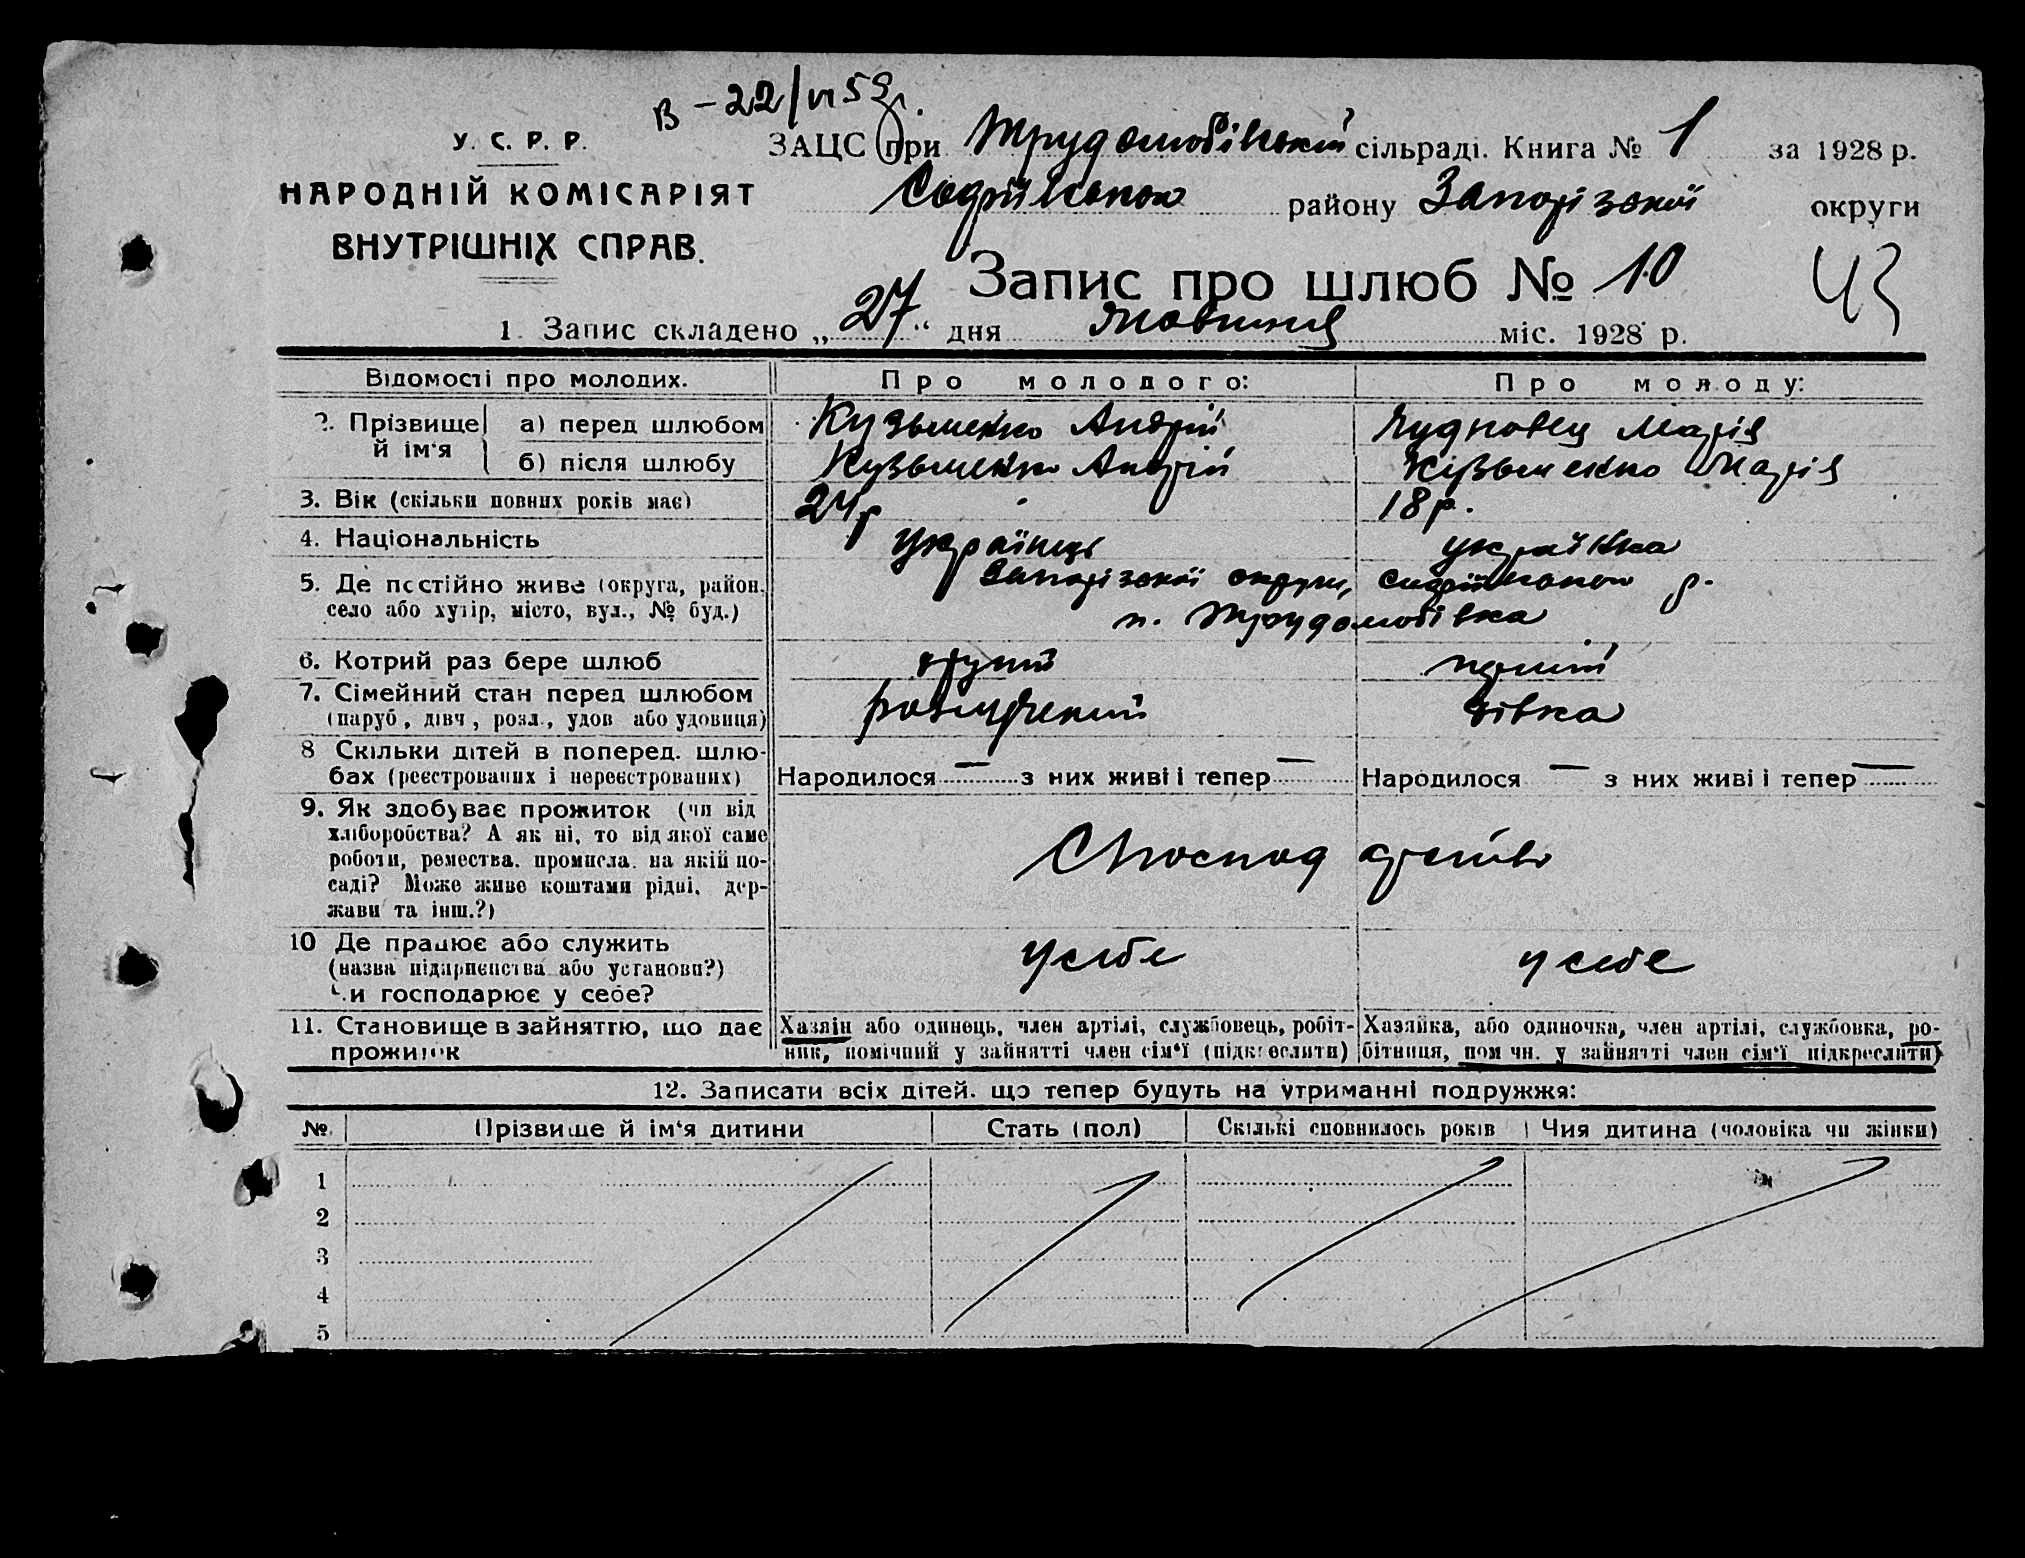 В – 22/VI 59
У. С. Р. Р.
НАРОДНІЙ КОМІСАРІЯТ
ВНУТРІШНІХ СПРАВ.
ЗАЦС при Трудолюбівській сільраді. Книга № 1 за 1928 р.
Софіївського району Запорізької округи
Запис про шлюб № 10
43
1. Запис складено „27“ дня жовтня міс. 1928 р.
Відомості про молодих. Про молодого: Про молоду:
2. Прізвище й ім‘я а) перед шлюбом Кузьменко Андрій Чудновец Марія
б) після шлюбу Кузьменко Андрій Кузьменко Марія
3. Вік (скільки повних років має) 24 р 18 р.
4. Національність українець українка
5. Де постійно живе (округа, район, Запорізької округи, р.
село або хутір, місто, вул., № буд.) Трудолюбівка
6. Котрий раз бере шлюб другий перший
7. Сімейний стан перед шлюбом
(паруб., дівч., розл., удов. або удовиця) розлучений дівка
8 Скільки дітей в поперед. шлю-
бах (реєстрованих і нереєстрованих) Народилося — з них живі і тепер — Народилося — з них живі і тепер —
9. Як здобуває прожиток (чи від
хліборобства? А як ні, то від якої саме
роботи, ремества, промисла, на якій по-
саді? Може живе коштами рідні, дер-
жави та інш.?)
10 Де працює або служить
(назва підприємства або установи?)
Чи господарює у себе? у себе у себе
11. Становище в зайняттю, що дає
прожиток
Хазяїн або одинець, член артілі, службовець, робіт-
ник, помічний у зайнятті член сім‘ї (підкреслити)
Хазяйка, або одиночка, член артілі, службовка, ро-
бітниця, помічн. у зайнятті член сім‘ї підкреслити)
12. Записати всіх дітей, що тепер будуть на утриманні подружжя:
№ Прізвище й ім‘я дитини Стать (пол) Скількі сповнилось років Чия дитина (чоловіка чи жінки)
1
2
3
4
5